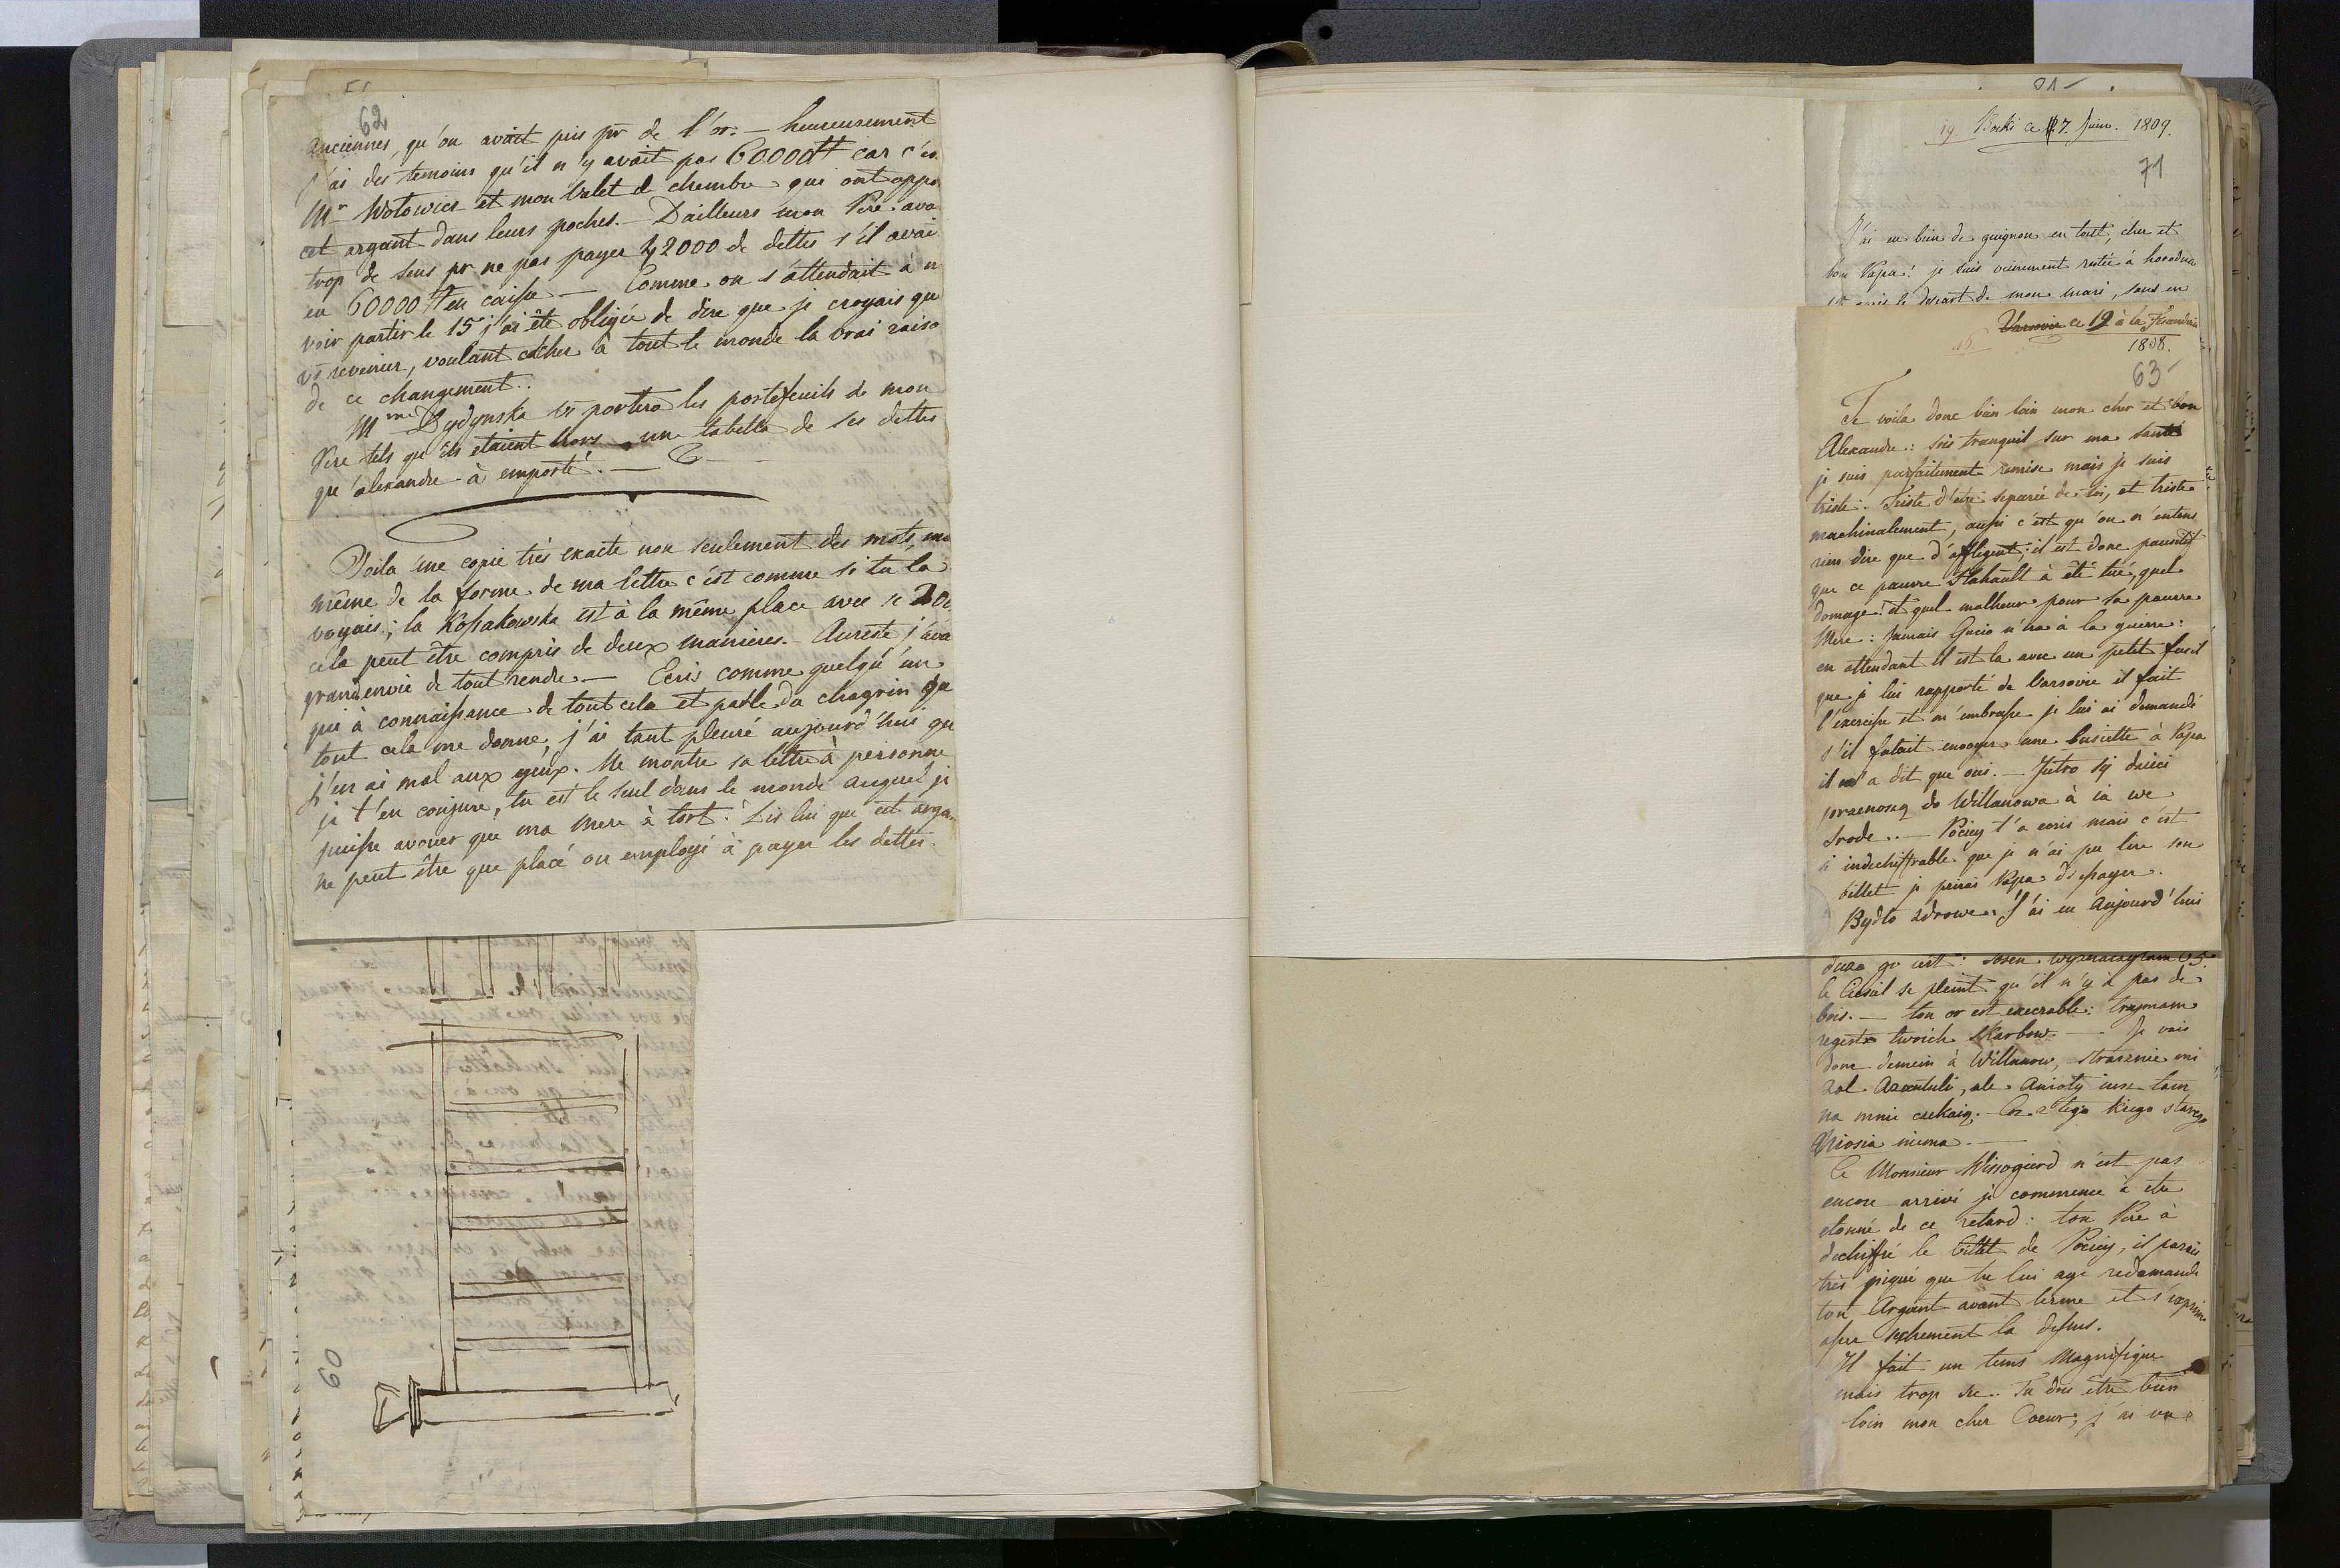 62
anciennes, qu'on avait pris pr de l'or. — heureusement
j'ai des temoins qu'il n'y avait pas 60000 car c'es
Mr Wolowicz et mon Valet de chembre qui ont appo
cet argant dans leurs poches. — Dailleurs mon Pere ava
trop de sens pr ne pas payer 42000 de dettes s'il avai
eu 60000 en caisse — Comme on s'attendait à n
voir partir le 15 j'ai été obligée de dire que je croyais qu
vs revenier, voulant cacher à tout le monde la vrai raiso
de ce changement..
Mme Dydynska vs portera les portefeuils de mon
Pere tels qu'ils etaient hors une tabella de ses dettes
qu'alexandre à emporté. —
Voila une copie très exacte non seulement des mots, ma
même de la forme de ma lettre c'est comme si tu la
voyais; la Kossakowska est à la même place avec se 200
cela peut être compris de deux manieres. — Aureste j'ava
grand envie de tout rendre. — Ecris comme quelqu'un
qui à connaissance de tout cela et parle du chagrin que
tout cela me donne, j'ai tant pleuré aujourd'hui qu
j'en ai mal aux yeux. Ne montre sa lettre à personne
je t'en conjure, tu est le seul dans le monde auquel je
puisse avouer que ma mere à tort. Dis lui que cet arga
ne peut être que placé ou employé à payer les dettes.
60
19 Bocki ce 7. Juin. 1809.
71
J'ai eu bien de guignon en tout, cher et
bon Papa! je suis vainement restée à horodna
après le depart de mon mari, sans en
Varsovie ce 19 à la
16.
1808.
63
Te voila donc bien loin mon cher et bon
Alexandre: sois tranquil sur ma santé
je suis parfaitement remise mais je suis
triste. Triste d'être separée de toi, et triste
machinalement, aussi c'est qu'on n'entens
rien dire que d'affligent: il est donc
que ce pauvre Flahault à été tué, quel
domage! et quel malheur pour sa pauvre
Mere: Jamais Gucio n'ira à la guerre:
en attendant il est la avec un petit fusil
que je lui rapporté de Varsovie il fait
l'exercisse et m'embrasse je lui ai demandé
s'il falait envoyer une busiette à Papa
il m'a dit que oui. — Jutro sy dzieci
przenoszą do Willanowa à ia we
Srode.. — Pociey t'a ecris mais c'est
si indechiffrable que je n'ai pu lire son
billet je prirai Papa d'essayer.
Bydło zdrowe. J'ai eu Aujourd'hui
duzo go iest: Sosen wyznaczyłam 65.
le se pleint qu'il n'y à pas de
bois. — ton or est execrable: trzymam
regestr twoich Skarbow — Je vais
donc demein à Willanow, strasznie mi
żal Azentuli, ale Anioły insze tam
na mnie czekaią. — Coz z tego kiego starego
Misia niema. —
Ce Monsieur Wissogierd n'est pas
encore arrivé je commence à etre
etonné de ce retard: ton Pere à
dechiffré le billet de Pociey, il parais
très piqué que tu lui aye redemandé
ton Argant avant terme et s'exprime
assez sechement la dessus.
Il fait un tems Magnifique
mais trop sec. Tu dois être bien
loin mon cher Coeur; j'ai vu